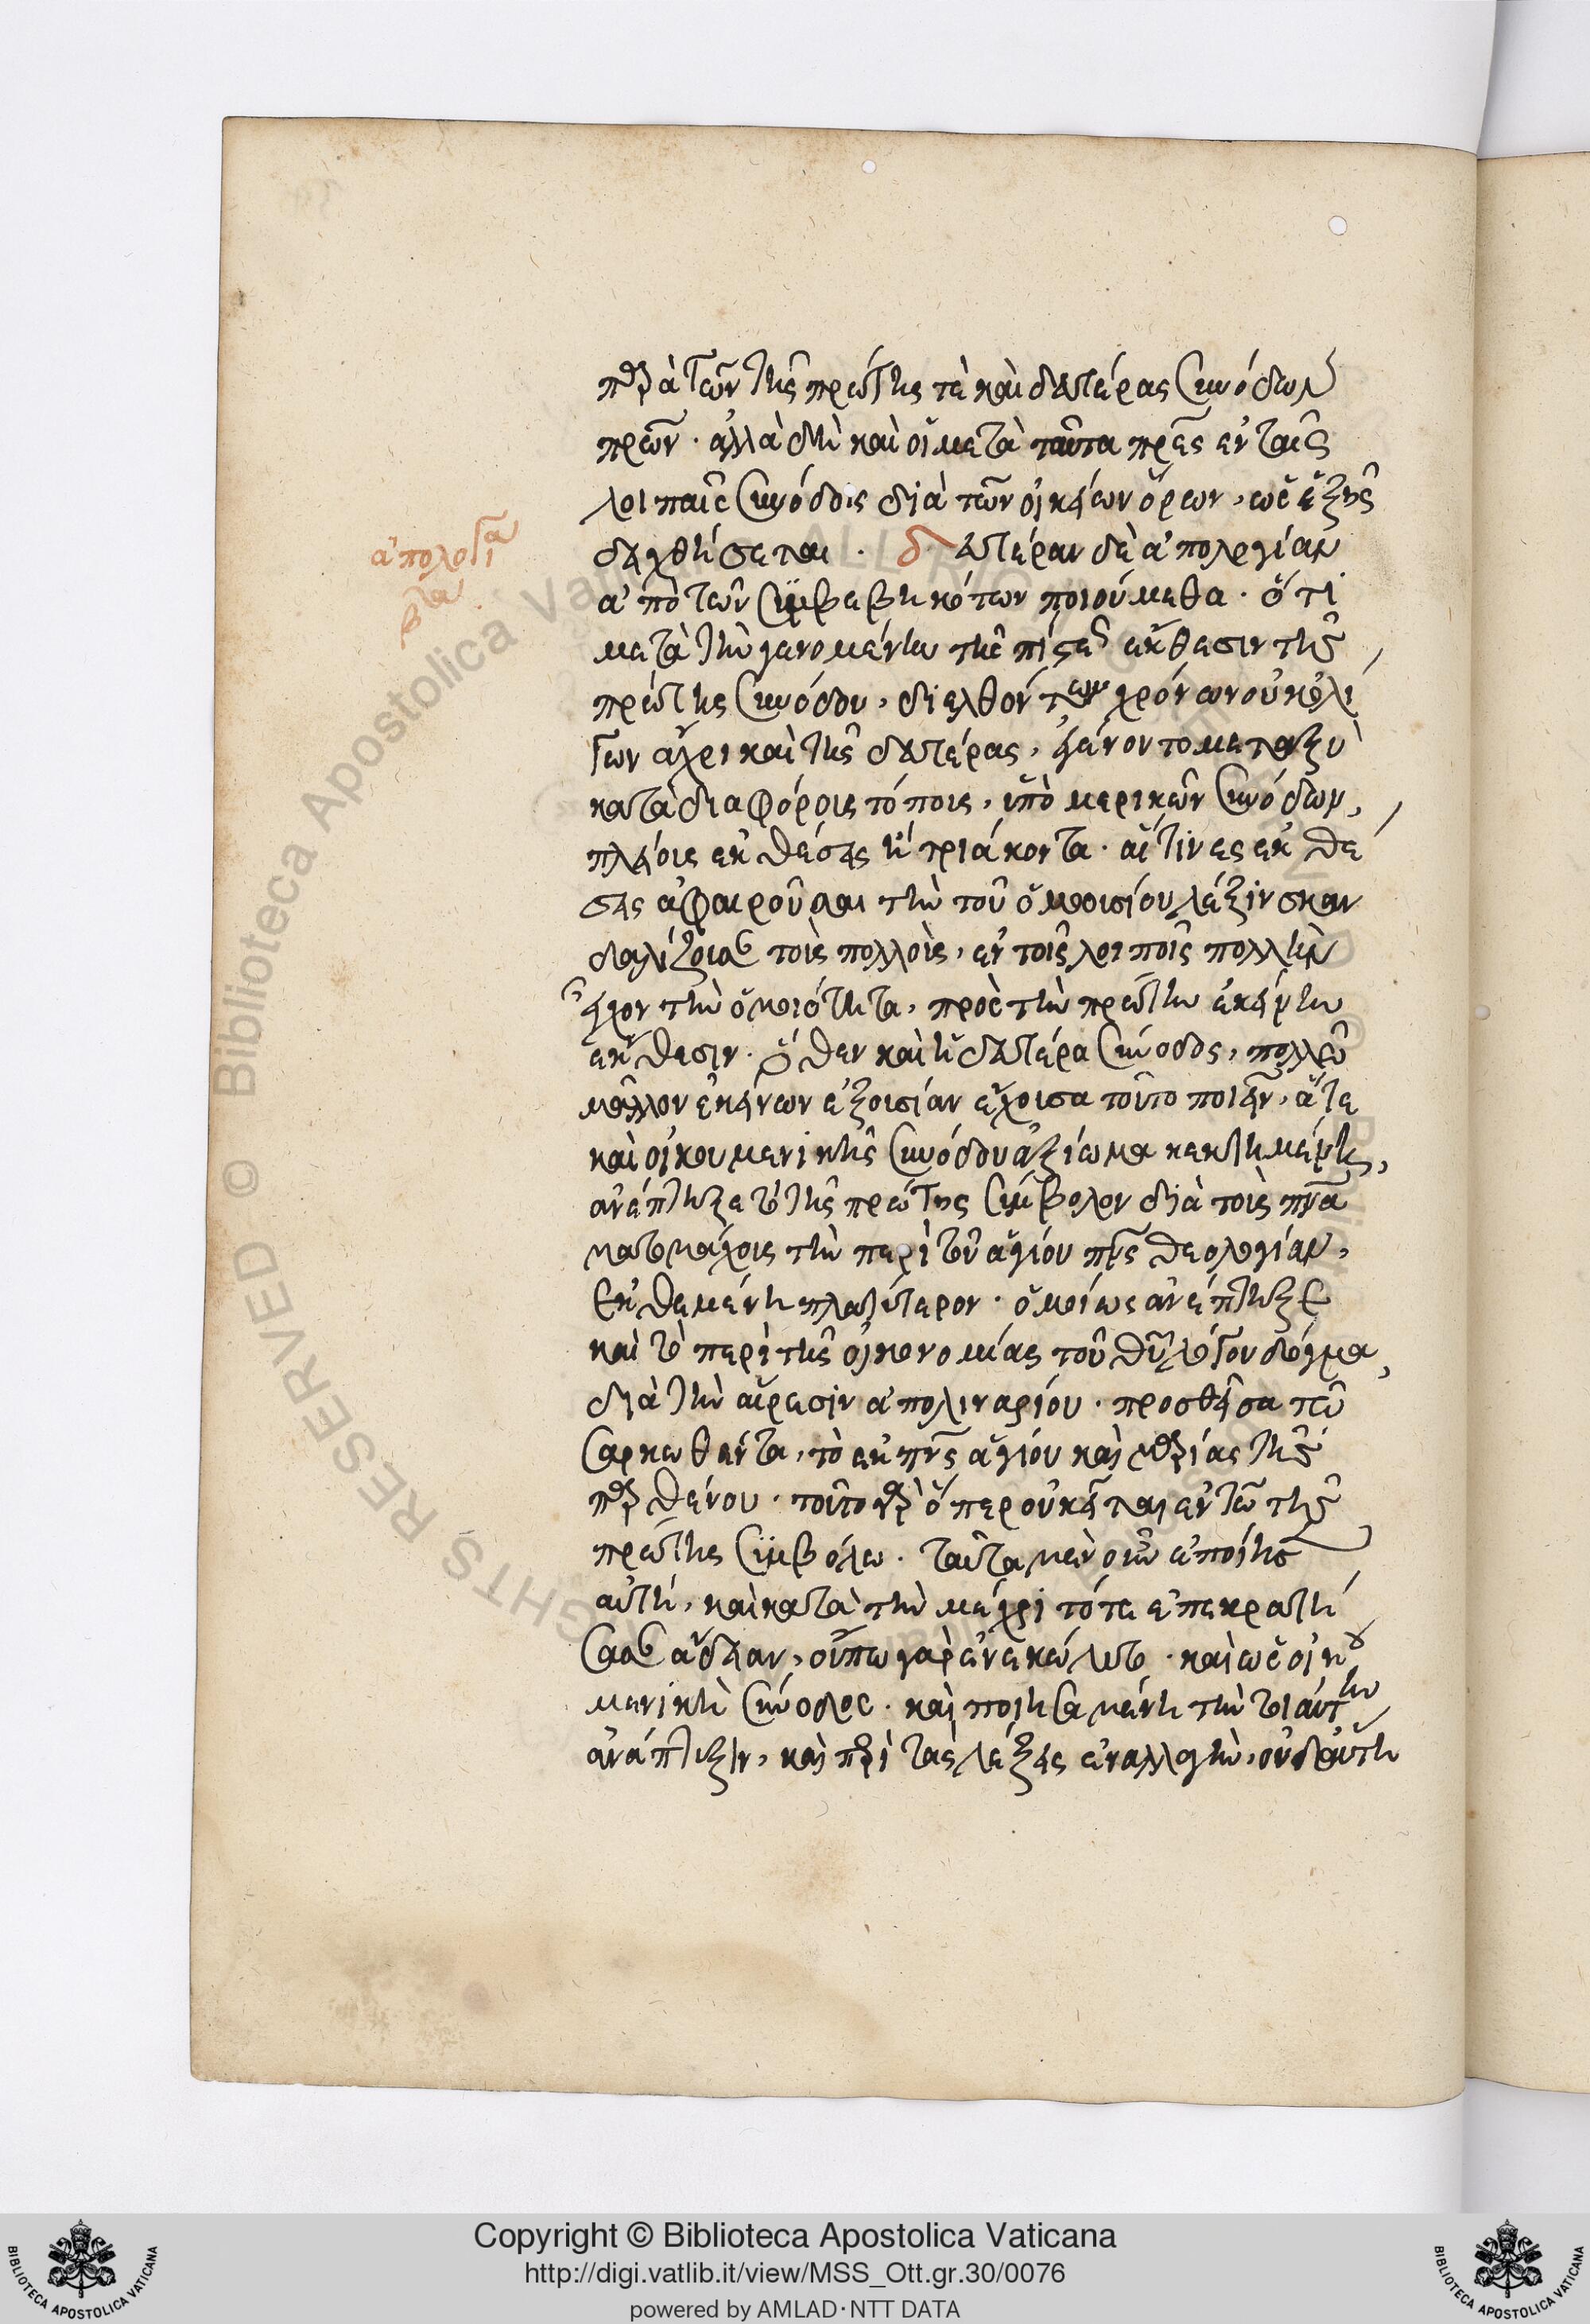 παρὰ τῶν τῆς πρώτης τὲ καὶ δευτέρας συνόδων
πρων̅. ἀλλὰ δὴ καὶ οἱ μετὰ ταῦτα πρες̅ ἐν ταῖς
λοιπαῖς συνόδοις διὰ τῶν οἰκείων ὅρων, ὡς ἑξῆς
δειχθήσεται. δευτέραν δὲ ἀπολογίαν
ἀπολογία
βτα
ἀπὸ τῶν συμβεβηκότων ποιούμεθα. ὅτι
μετὰ τὴν γενομένην τῆς πίστεως ἔκθεσιν τῆς
πρώτης συνόδου, διελθόντων χρόνων οὐκ ὀλί
γων ἄχρι καὶ τῆς δευτέρας, ἐγένοντο μεταξὺ
κατὰ διαφόροις τόποις, ὑπὸ μερικῶν συνόδων,
πλείοις ἐκθέσεις ἢ τριάκοντα. αἵτινες ἐκθέ
σεις ἀφαιροῦσαι τὴν τοῦ ὁμοουσίου λέξιν σκαν
δαλίζουσαν τοὺς πολλοὺς, ἐν τοῖς λοιποῖς πολλὴν
εἶχον τὴν ὁμοιότητα, πρὸς τὴν πρώτην ἐκείνην
ἔκθεσιν. ὅθεν καὶ ἡ δευτέρα σύνοδος, πολλῶ
μᾶλλον ἐκείνων ἐξουσίαν ἔχουσα τοῦτο ποιεῖν, ἅτε
καὶ οἰκουμενικῆς συνόδου ἀξίωμα κεκτημένη,
ἀνέπτυξε τὸ τῆς πρώτης σύμβολον διὰ τοὺς πνα̅
ματομάχους τὴν περὶ τοῦ ἁγίου πνς̅ θεολογίαν,
ἐκθεμένη πλατύτερον. ὁμοίως ἀνέπτυξε
καὶ τὸ περὶ τῆς οἰκονομίας τοῦ θυ̅ λόγου δόγμα,
διὰ τὴν αἵρεσιν ἀπολιναρίου. προσθεῖσα τῶ
σαρκωθέντα, τὸ ἐκ πνς̅ ἁγίου καὶ μαρίας τῆς
παρθένου. τοῦτο γὰρ ὅπερ οὐ κεῖται ἐν τῶ τῆς
πρώτης συμβόλω. ταῦτα μὲν οὖν ἐποίησεν
αὐτή, καὶ κατὰ τὴν μέχρι τότε ἐπικρατή
σασαν ἄδειαν, οὔπω γὰρ ἐνεκώλυτο. καὶ ὡς οἰκου
μενικὴ σύνοδος. καὶ ποιησαμένη τὴν τοιαύτην
ἀνάπτυξιν, καὶ περὶ τὰς λέξεις ἐναλλαγὴν, οὐδ' αὐτὴ
Copyright © Biblioteca Apostolica Vaticana
http://digi.vatlib.it/view/MSS_Ott.gr.30/0076
powered by AMLAD·NTT DATA